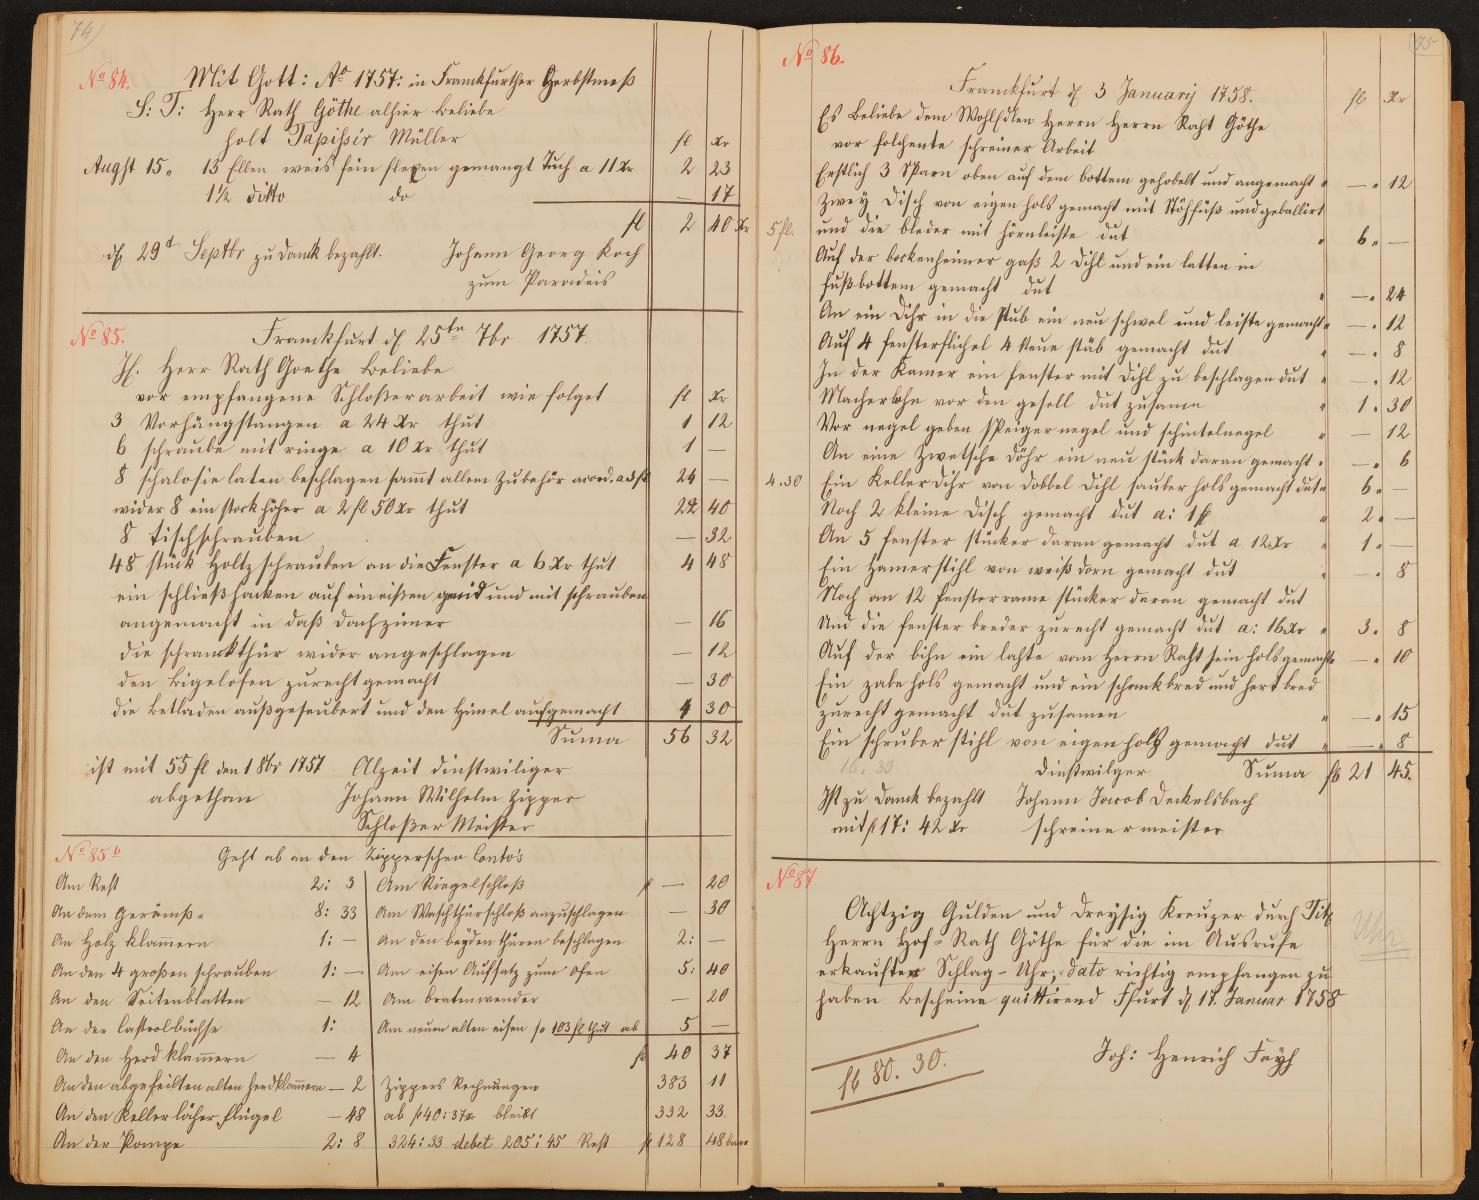 74)
No 84. Mit Gott: Ao 1757: in Franckfurther Herbstmeß
S: T: Herr Rath Göthe alhier Beliebe
holt Tapissir Müller fl Xr
Augst 15 „ 15 Ellen weis fein flexen gemangt Tuch a 11 Xr 2 23
1½ ditto do — 17
fl 2 40 Xr
d 29d Septbr zu Danck bezahlt. Johann Georg Koch
zum Paradeis
No 85. Franckfurt d. 25tn 7br 1757.
Herr Rath Goethe Beliebe
vor empfangene Schloßerarbeit wie folget fl Xr
3 Vorhängstangen a 24 Xr thut 1 12
6 schraube mit ringe a 10 Xr thut 1 —
8 schalosie laten beschlagen sammt allem Zubehör accord. a 3 fl 24 —
wider 8 ein stock höher a 2 fl 50 Xr thut 22 40
8 tischschrauben — 32
48 stück Holtzschrauben an die Fenster a 6 Xr thut 4 48
ein schließhacken auf ein eißen und mit schrauben
angemacht in daß Dachzimer — 16
die schranckthür wider angeschlagen — 12
den Bigelofen zurecht gemacht — 30
die Betladen außgeseubert und den Himel aufgemacht 1 30
Suma 56 32
ist mit 55 fl den 1 8br 1757 Alzeit dinstwiliger
abgethan Johann Wilhelm Zipper
Schloßer Meister
No 85b Geht ab an den Zipperschen Conto's
Am Rest 2: 3 Am Riegelschloß f — 20
An dem Gerämß 8: 33 Am Waschthürschloß anzuschlagen — 30
An Holz klammern 1: — An den beyden thüren beschlagen 2: —
An den 4 großen schrauben 1: — Am eisen Aufsatz zum ofen 5: 40
An den Seitenblatten — 12 Am bratenwender — 20
An der Castrolbüchse 1: Am neuen alten eisen so 103 fl thut ab 5 —
An den Herd klammern — 4 fl 40 37
An den abgefeilten alten Herdklammern — 2 Zippers Rechnungen 383 11
An den Kellerlöcher flügel — 48 ab f 40: 37 Xr bleibt 332 33.
An der Pompe 2: 8 324: 33 debet 205: 45 Rest f 128 48
75
No 86.
Franckfurt d 3 Januarij 1758. fl Xr
Es Beliebe dem WohlEdlen Herrn Herrn Raht Göthe
vor folchente schreiner Arbeit
Erstlich 3 Sparn oben auf dem bottem gehobelt und angemacht — 12
Zwey Disch von eigen hols gemacht mit Stöhfüß und geballirt
5 fl. und die bleder mit hörnleiste dut 6 —
Auf der bockenheimer gaß 2 Dihl und ein latten in
fußbottem gemacht dut — 24
An ein Dihr in die stub ein neu schwel und leiste gemacht — 12
Auf 4 fensterflichel 4 Neue stäb gemacht dut — 8
In der Kamer ein fenster mit Dihl zu beschlagen dut — 12
Macherlohn vor den gesell dut zusamen 1 30
Vor negel geben speigernegel und schintelnegel — 12
An eine Zwetsche Döhr ein neu stück daran gemacht — 6
4.30 Ein Keller Dihr von dobbel Dihl sauber hols gemacht dut 6 —
Noch 2 kleine Disch gemacht dut a: 1 f 2 —
An 5 fenster stücker daran gemacht dut a 12 Xr 1 —
Ein Hamerstihl von weiß dorn gemacht dut — 8
Noch an 12 fensterrame stücker daran gemacht dut
Und die fenster breder zurecht gemacht dut a: 16 Xr 3 8
Auf der bihn ein lahte vom Herrn Raht sein hols gemacht — 10
Ein zabe hols gemacht und ein schank bred und hert bred
zurecht gemacht dut zusamen — 15
Ein schruberstihl von eigen hols gemacht dut — 8
16. 30 Dinstwilger Suma fl 21 45.
Ist zu Danck bezahlt Johann Jacob Deckelsbach
mit f 17: 42 Xr schreiner meister
No 87
Achtzig Gulden und Dreysig Kreuzer durch Tit
Herrn Hof-Rath Göthe für die im Ausrufe
erkauften Schlag-Uhr, dato richtig empfangen zu
haben Bescheine quittirend Ffurt d 17. Januar 1758
Uhr
Joh: Henrich Feyh
fl 80. 30.